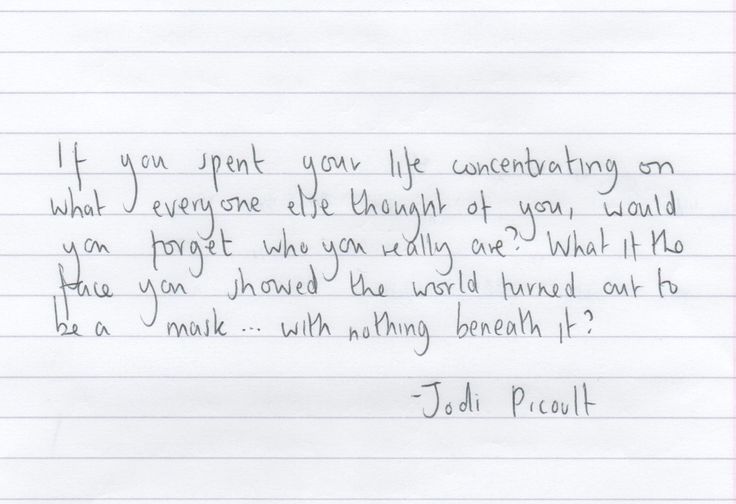 If you spent your life concentrating on
what everyone else thought of you, would
you forget who you really are? What if the
face you showed the world turned out to
be a mask... with nothing beneath it?
-Jodi Picoult